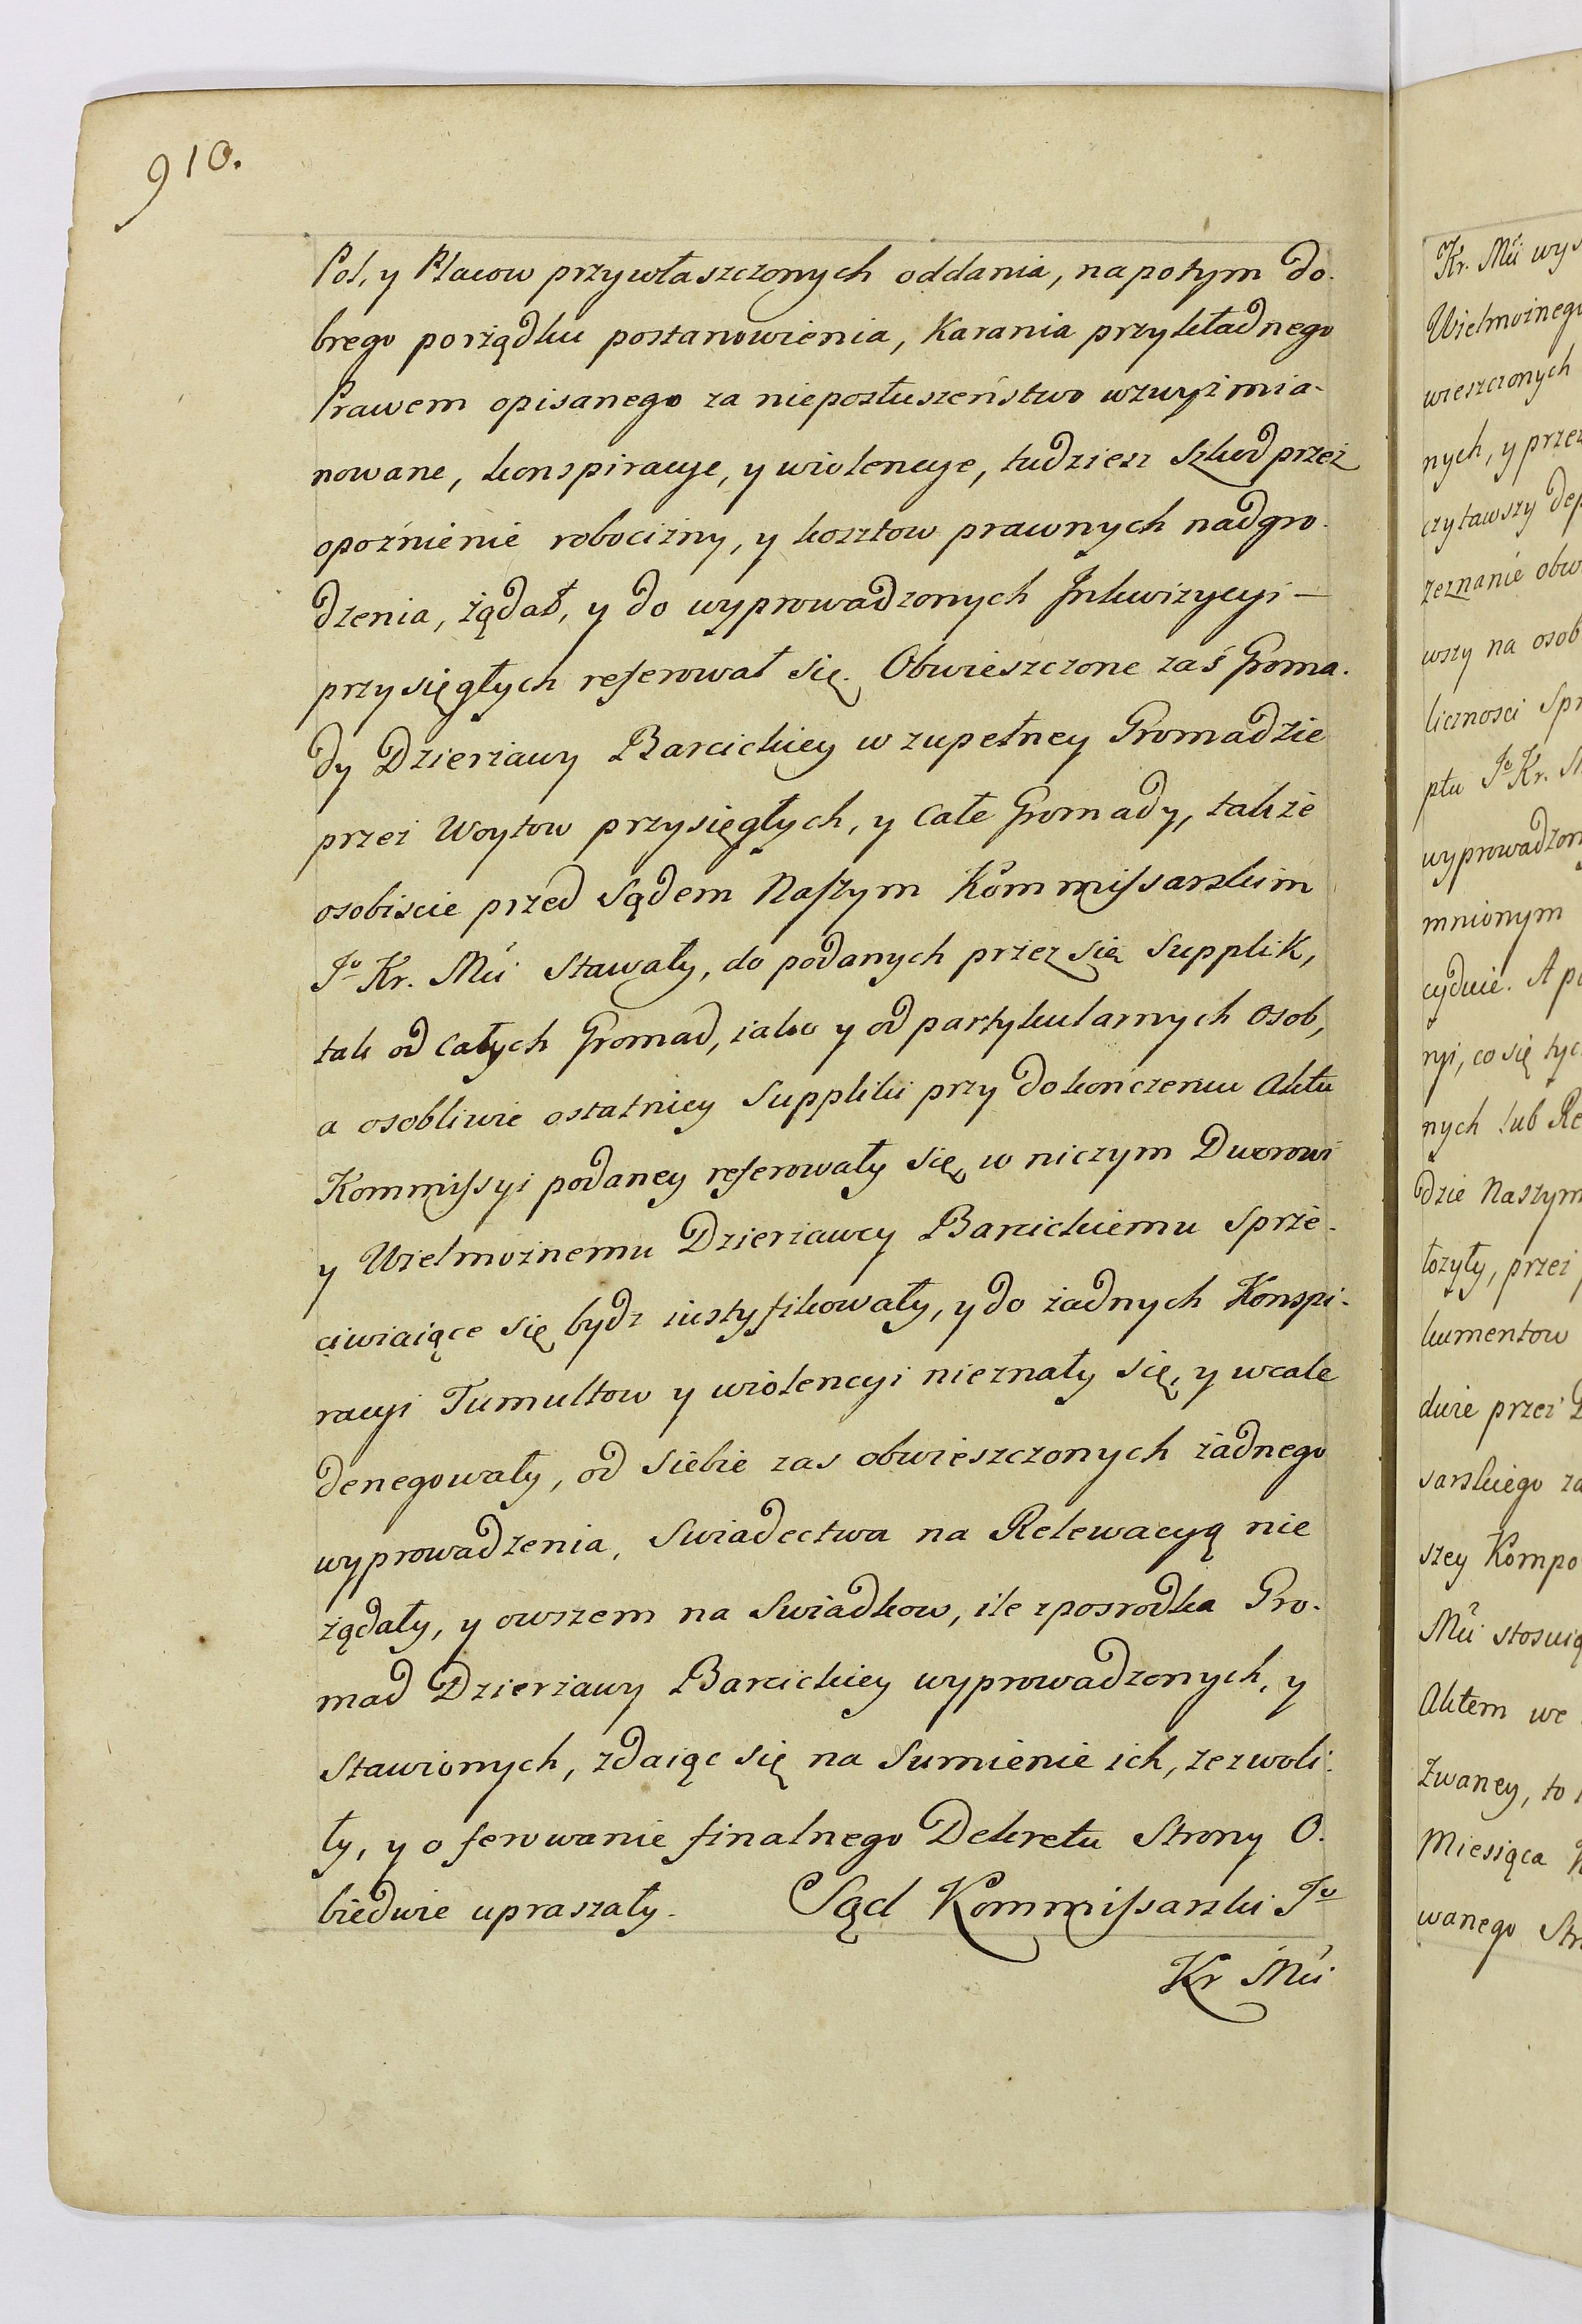 910.
Pol, y Placow przywłaszczonych oddania, napotym do-
brego porządku postanowienia, Karania przykładnego
Prawem opisanego za nieposłuszeństwo wzwyż mia-
nowane, konspiracye, y wiolencye, tudziesz Szkod przez
opoźnienie robocizny, y kosztow prawnych nadgro-
dzenia, żądał, y do wyprowadzonych Inkwizycyi —
przysięgłych referował się. Obwieszczone zaś Groma-
dy Dzierżawy Barcickiey w zupełney Gromadzie
przez Woytow przysięgłych, y Całe Gromady, także
osobiscie przed Sądem Naszym Kommissarskim
Jo Kr. Mci Stawały, do podanych przez się Supplik,
tak od Całych Gromad, iako y od partykularnych Osob,
a osobliwie ostatniey Suppliki przy dokończeniu Aktu
Kommissyi podaney referowały się, w niczym Dworowi
y Wielmożnemu Dzierżawcy Barcickiemu Sprze-
ciwiaiące się bydz iustyfikowały, y do żadnych Konspi-
racyi Tumultow y wiolencyi nieznały się, y wcale
denegowały, od Siebie zas obwieszczonych żadnego
wyprowadzenia, Swiadectwa na Relewacyą nie
żądały, y owszem na Swiadkow, ile zposrodka Gro-
mad Dzierżawy Barcickiey wyprowadzonych, y
Stawionych, zdaiąc się na Sumienie ich, zezwoli-
ły, y o ferowanie finalnego Dekretu Strony O-
biedwie upraszały. Sąd Kommissarski Jo
Kr Mci
Kr. Mci wys
Wielmożnego
wieszczonych
nych, y przez
czytawszy dep
zeznanie obw
wszy na osob
licznosci Spr
ptu Jo Kr. M
wyprowadzon
mnionym
cyduie. A po
nyi, co się tyc
nych lub Re
dzie Naszym
łożyły, przez
kumentow
duie przez D
sarskiego za
szey Kompo
Mci stosuią
Aktem we
Zwaney, to
Miesiąca
wanego Str